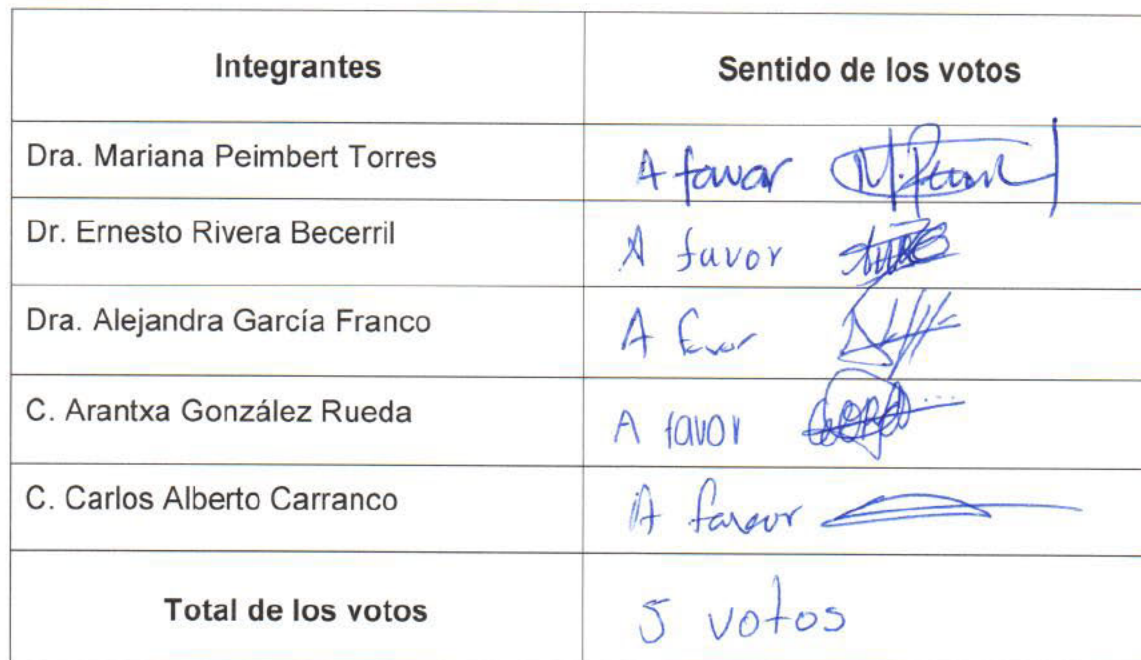 Integrantes Sentido de los votos
Dra. Mariana Peimbert Torres A favor
Dr. Ernesto Rivera Becerril A favor
Dra. Alejandra García Franco A favor
C. Arantxa González Rueda A favor
C. Carlos Alberto Carranco A favor
Total de los votos 5 votos